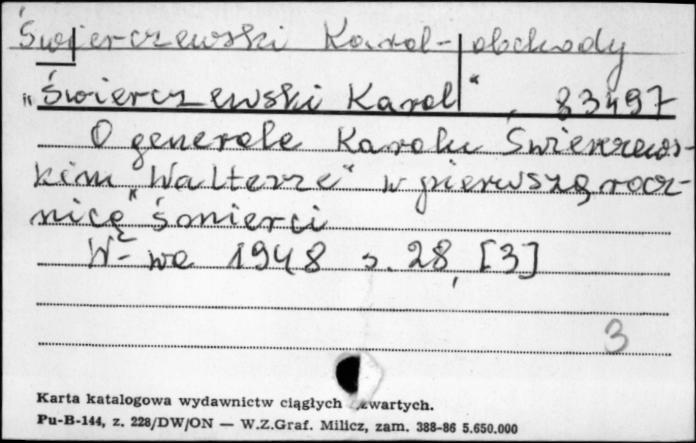 Świerczewski Karol - obchody
"Świerczewski Karol", 83497
O generale Karolu Świerczews-
kim "Walterze" w pierwszą rocz-
nicę śmierci
W-wa 1948 s. 28, [3]
3
Karta katalogowa wydawnictw ciągłych zwartych.
Pu-B-144, z. 228/DW/ON — W.Z.Graf. Milicz, zam. 388-86 5.650.000